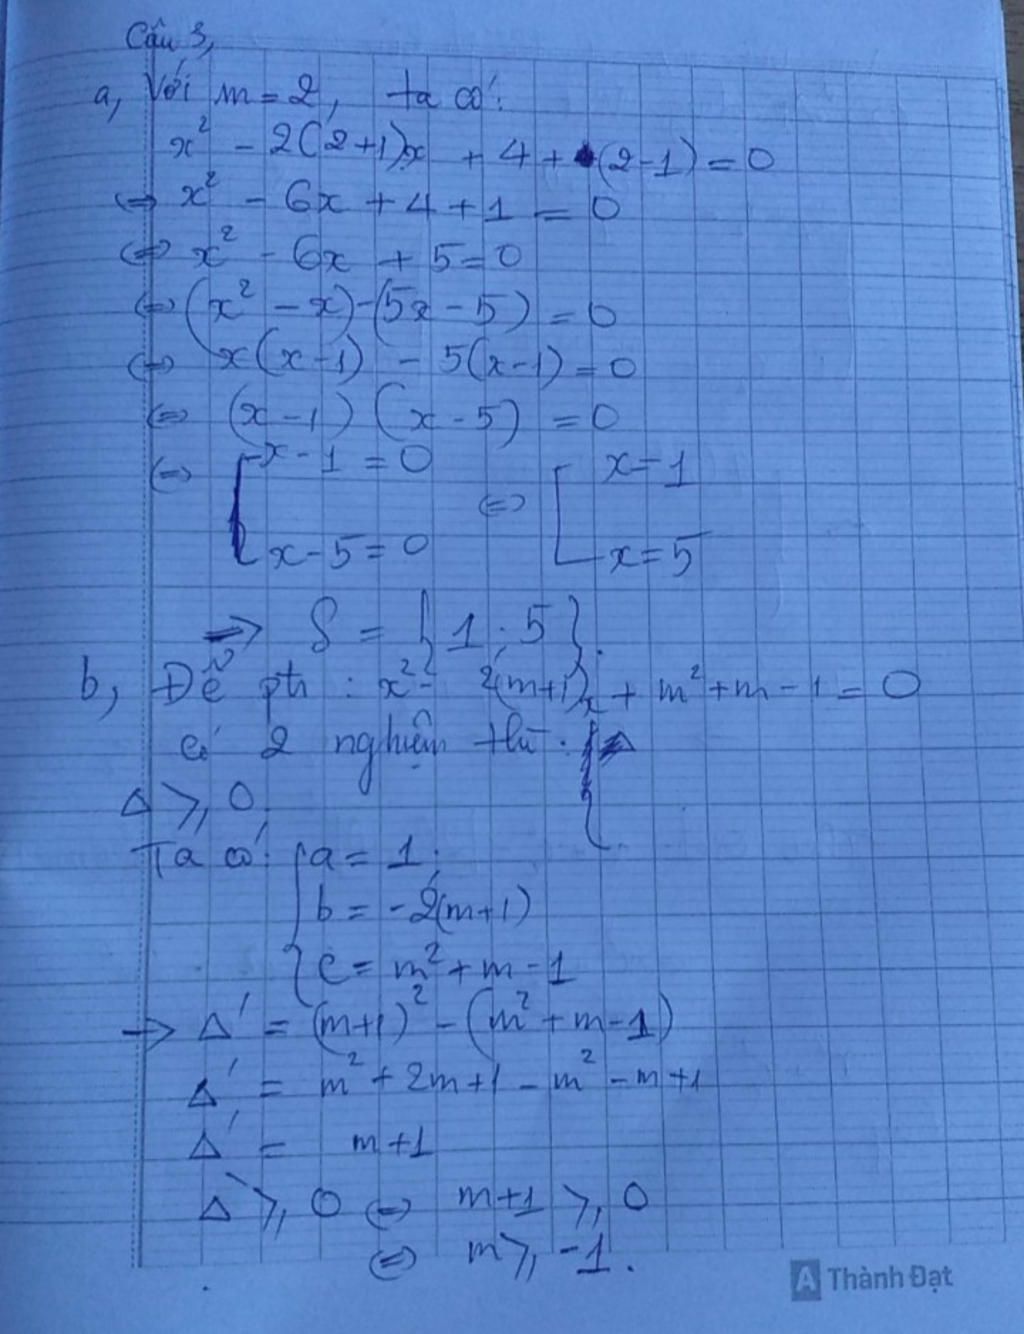 Câu 3,
a, Với m = 2, ta có:
x² - 2(2+1)x + 4 + (2-1) = 0
⇔ x² - 6x + 4 + 1 = 0
⇔ x² - 6x + 5 = 0
⇔ (x² - x) - (5x - 5) = 0
⇔ x(x-1) - 5(x-1) = 0
⇔ (x-1) (x-5) = 0
⇔ [ x - 1 = 0 ⇔ [ x = 1
x - 5 = 0 x = 5
⇒ S = {1; 5}.
b, Để pt : x² - 2(m+1)x + m² + m - 1 = 0
có 2 nghiệm thì :
Δ ⩾ 0.
Ta có: { a = 1;
b = -2(m+1)
c = m² + m - 1
→ Δ' = (m+1)² - (m² + m - 1)
Δ' = m² + 2m + 1 - m² - m + 1
Δ' = m + 1
Δ' ⩾ 0 ⇔ m + 1 ⩾ 0
⇔ m ⩾ -1.
A Thành Đạt